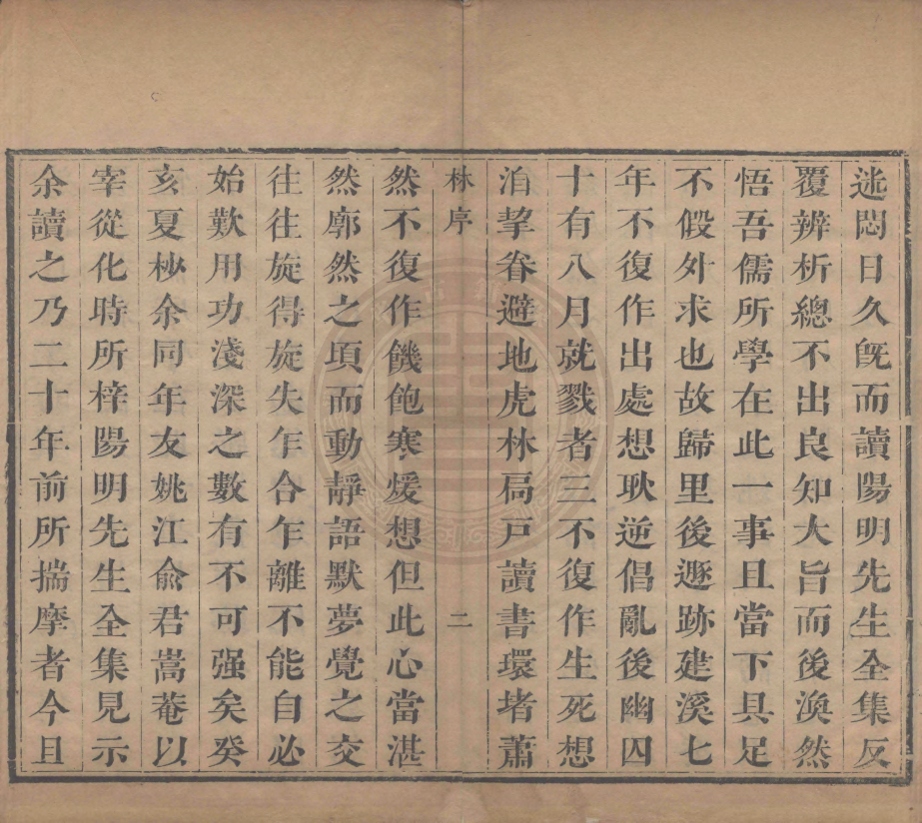 迯悶日久旣而讀陽明先生全集反
覆辨析總不出良知大旨而後渙然
悟吾儒所學在此一事且當下具足
不假外求也故歸里後遯跡建溪七
年不復作出處想耿逆倡亂後幽囚
十有八月就戮者三不復作生死想
洎挈眷避地虎林局戸讀書環堵蕭
林序 二
然不復作饑飽寒煖想但此心當湛
然廓然之頃而動靜語默夢覺之交
往往旋得旋失乍合乍離不能自必
始歎用功淺深之數有不可强矣癸
亥夏杪余同年友姚江俞君嵩菴以
宰從化時所梓陽明先生全集見示
余讀之乃二十年前所揣摩者今且